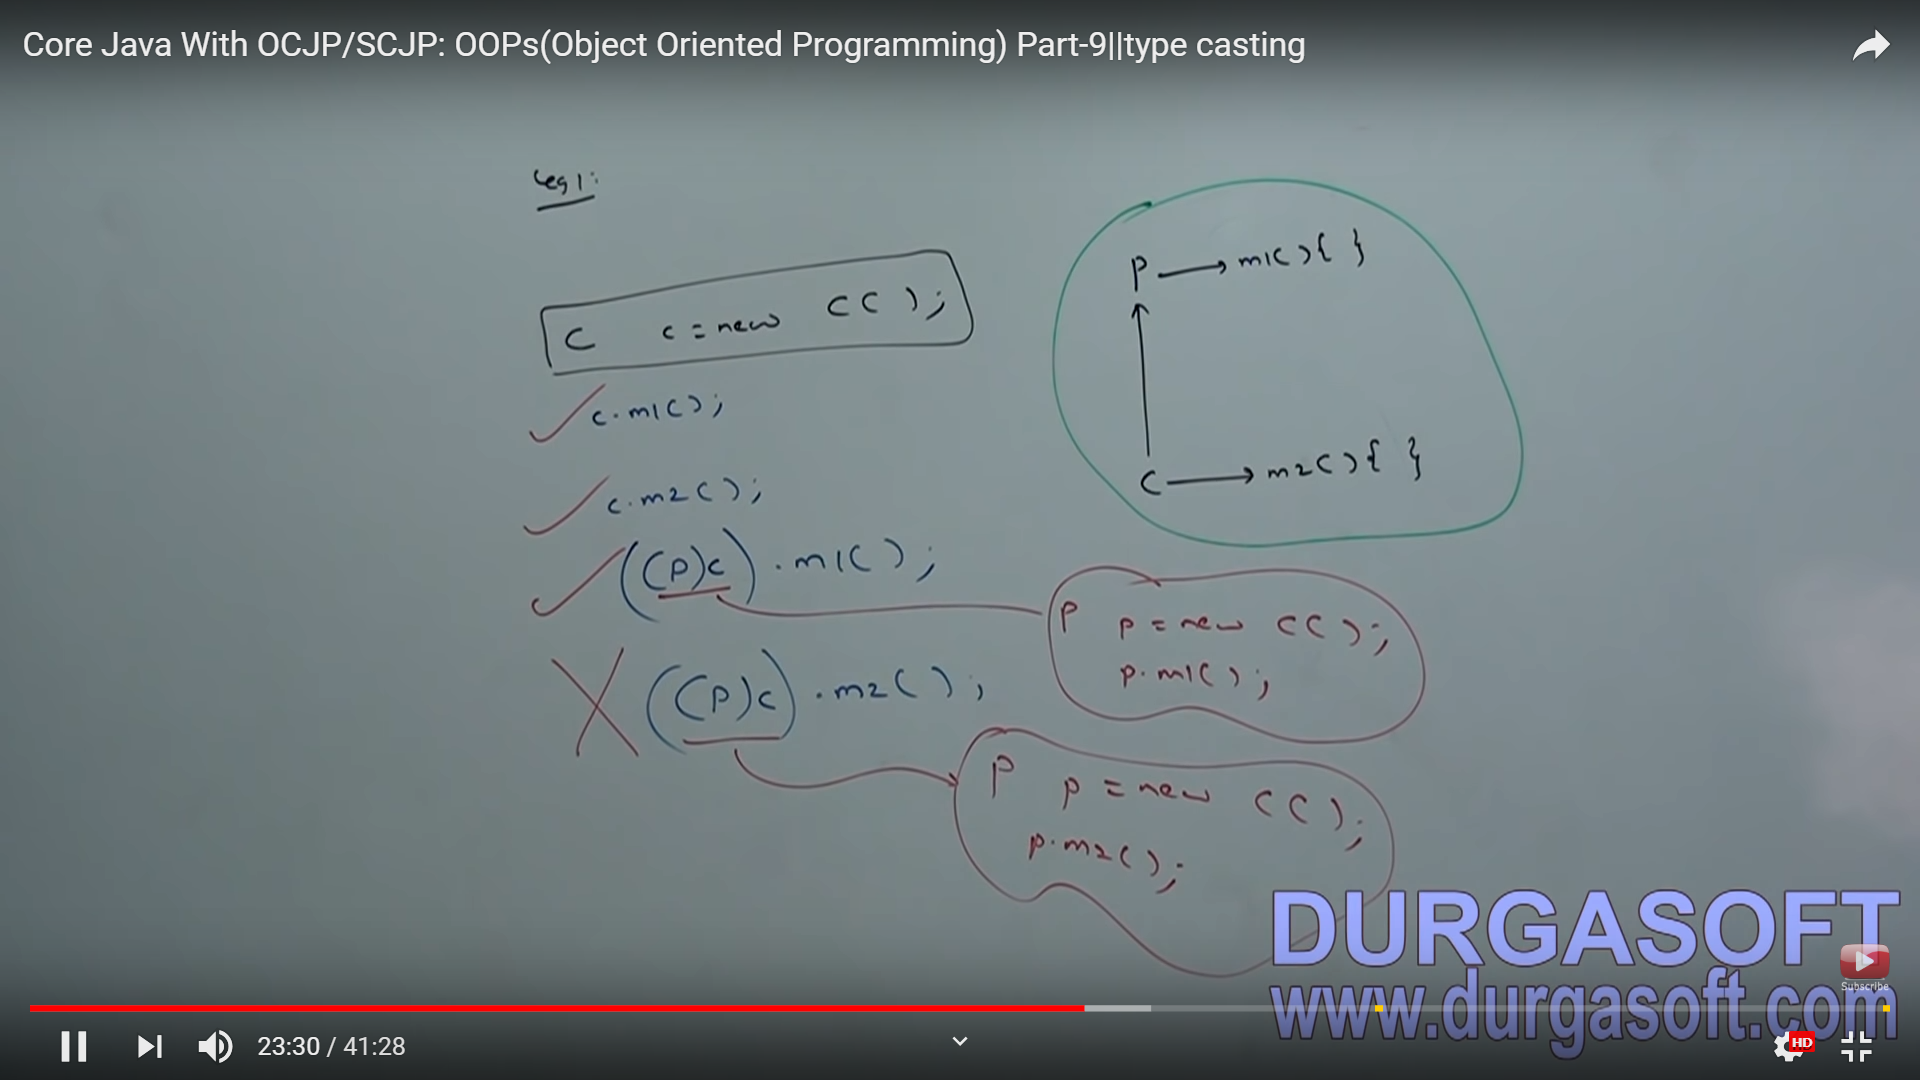 Core Java With OCJP/SCJP: OOPs(Object Oriented Programming) Part-9||type casting
eg1:
C c = new C( );
c.m1( );
c.m2( );
((P)c).m1( );
((P)c).m2( );
P → m1( ){ }
C → m2( ){ }
P p = new C( );
p.m1( );
P p = new C( );
p.m2( );
DURGASOFT
www.durgasoft.com
Subscribe
23:30 / 41:28
HD